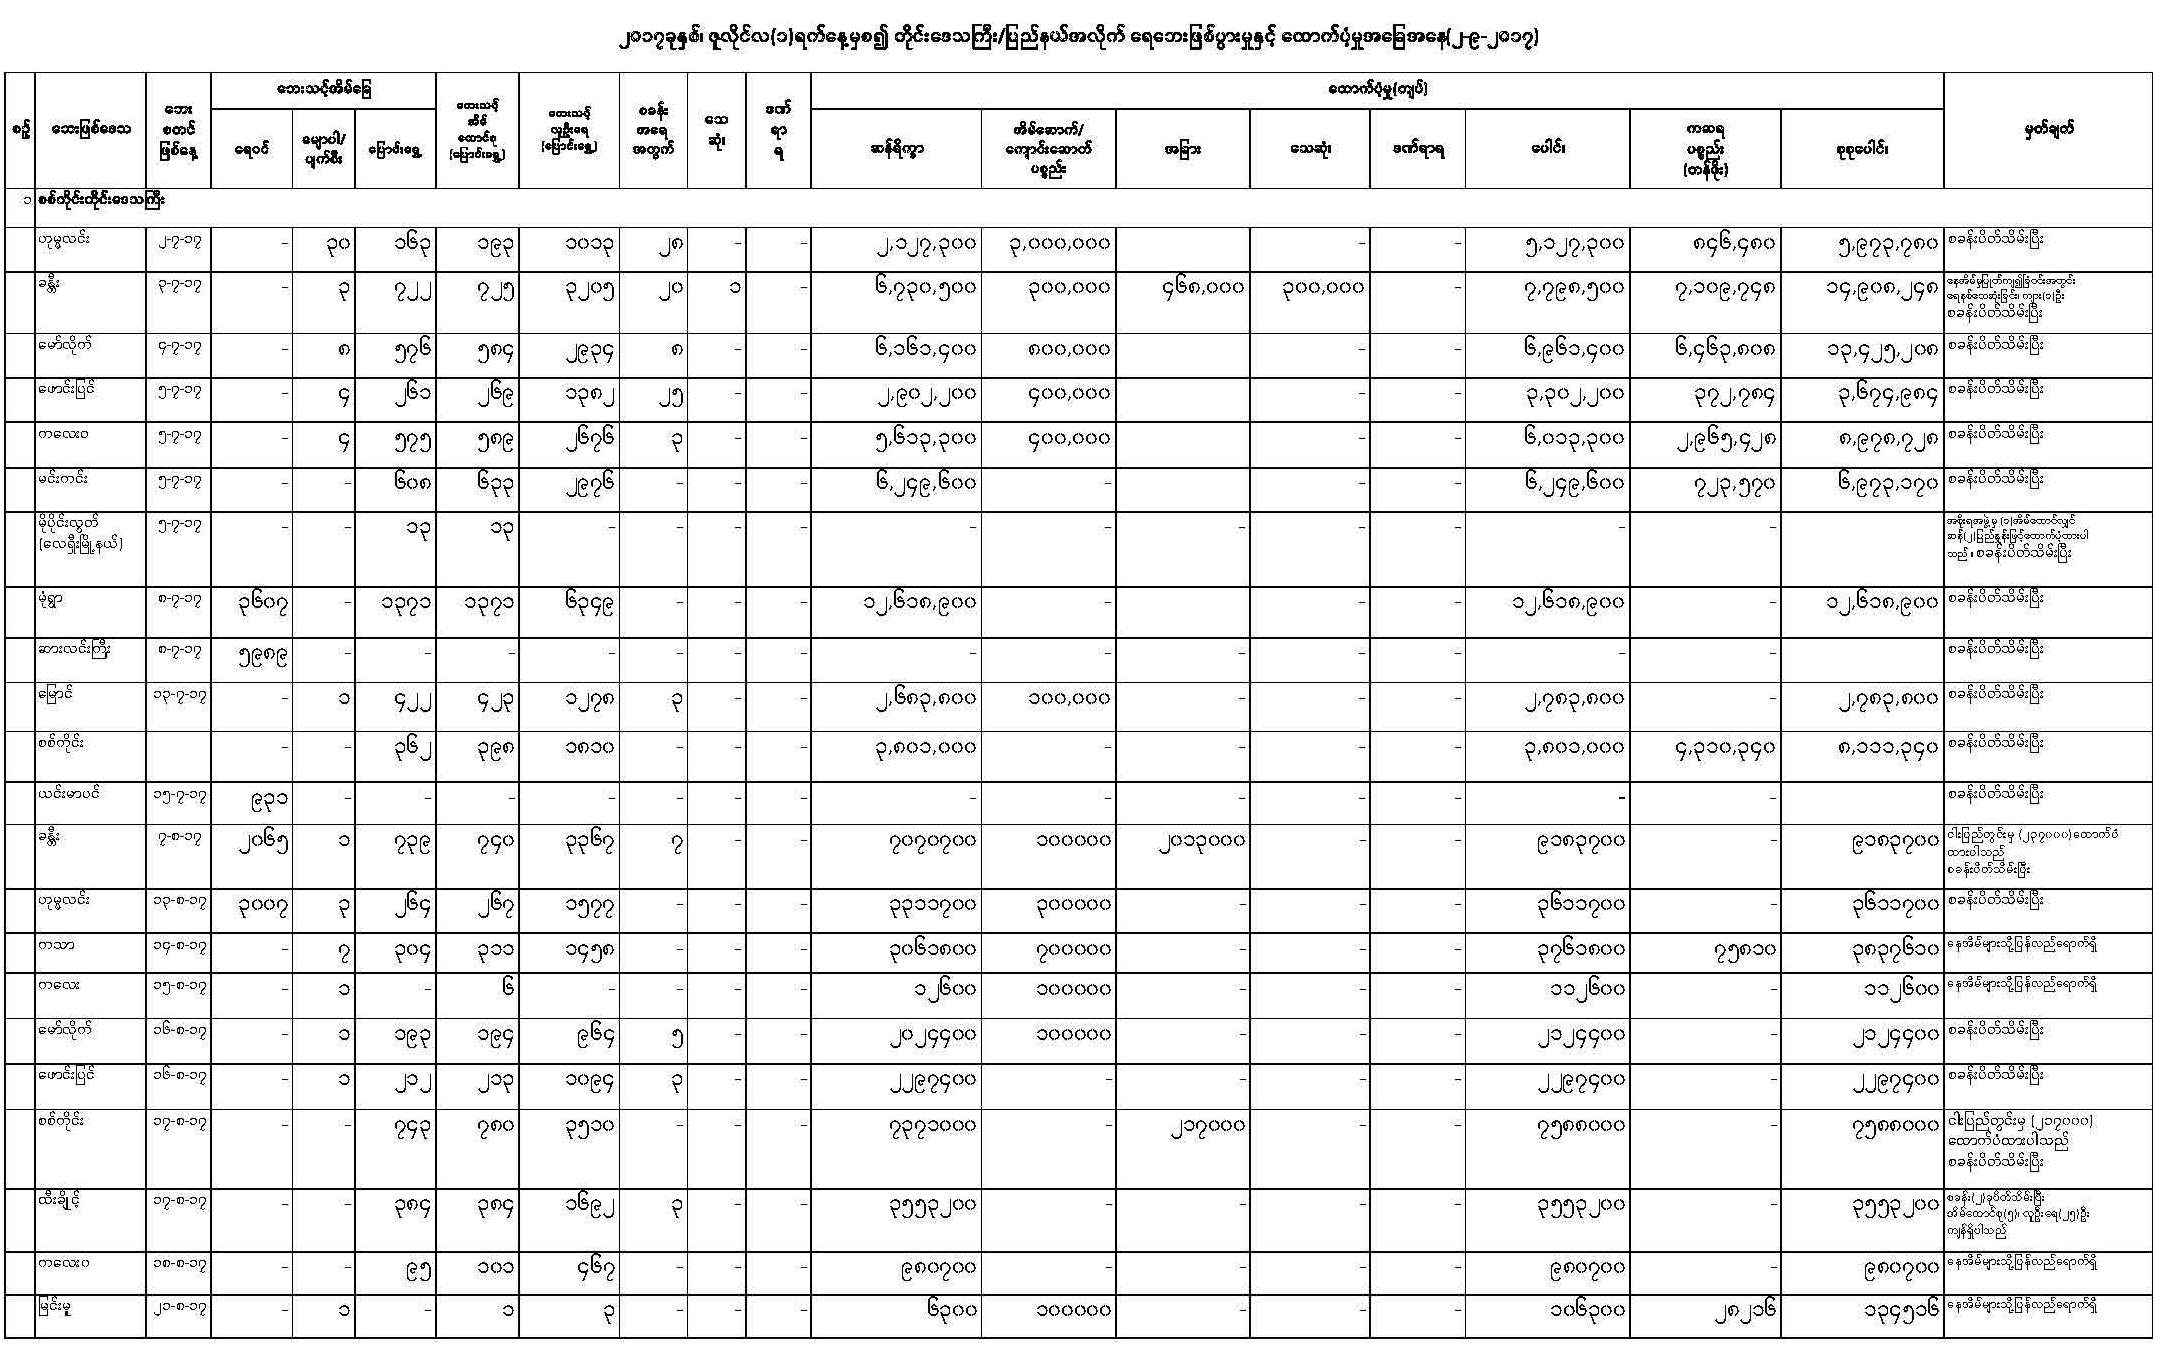 ၂၀၁၇ခုနှစ်၊ ဇူလိုင်လ(၁)ရက်နေ့မှစ၍ တိုင်းဒေသကြီး/ပြည်နယ်အလိုက် ရေဘေးဖြစ်ပွားမှုနှင့် ထောက်ပံ့မှုအခြေအနေ(၂-၉-၂၀၁၇)
စဉ် ဘေးဖြစ်ဒေသ ဘေးစတင်ဖြစ်နေ့ ဘေးသင့်အိမ်ခြေ ဘေးသင့်အိမ်ထောင်စု(ပြောင်းရွှေ့) ဘေးသင့်လူဦးရေ(ပြောင်းရွှေ့) စခန်းအရေအတွက် သေဆုံး ဒဏ်ရာရ ထောက်ပံ့မှု(ကျပ်) မှတ်ချက်
ရေဝင် မျောပါ/ပျက်စီး ပြောင်းရွှေ့ ဆန်ရိက္ခာ အိမ်ဆောက်/ကျောင်းဆောက်ပစ္စည်း အခြား သေဆုံး ဒဏ်ရာရ ပေါင်း ကဆရပစ္စည်း(တန်ဖိုး) စုစုပေါင်း
၁ စစ်ကိုင်းတိုင်းဒေသကြီး
ဟုမ္မလင်း ၂-၇-၁၇ - ၃၀ ၁၆၃ ၁၉၃ ၁၀၁၃ ၂၈ - - ၂,၁၂၇,၃၀၀ ၃,၀၀၀,၀၀၀ - - ၅,၁၂၇,၃၀၀ ၈၄၆,၄၈၀ ၅,၉၇၃,၇၈၀ စခန်းပိတ်သိမ်းပြီး
ခန္တီး ၃-၇-၁၇ - ၃ ၇၂၂ ၇၂၅ ၃၂၀၅ ၂၀ ၁ - ၆,၇၃၀,၅၀၀ ၃၀၀,၀၀၀ ၄၆၈,၀၀၀ ၃၀၀,၀၀၀ - ၇,၇၉၈,၅၀၀ ၇,၁၀၉,၇၄၈ ၁၄,၉၀၈,၂၄၈ နေအိမ်မှပြုတ်ကျ၍ခြံဝင်းအတွင်း
ရေနစ်သေဆုံးခြင်း၊ ကျား(၁)ဦး
စခန်းပိတ်သိမ်းပြီး
မော်လိုက် ၄-၇-၁၇ - ၈ ၅၇၆ ၅၈၄ ၂၉၃၄ ၈ - - ၆,၁၆၁,၄၀၀ ၈၀၀,၀၀၀ - - ၆,၉၆၁,၄၀၀ ၆,၄၆၃,၈၀၈ ၁၃,၄၂၅,၂၀၈ စခန်းပိတ်သိမ်းပြီး
ဖောင်းပြင် ၅-၇-၁၇ - ၄ ၂၆၁ ၂၆၉ ၁၃၈၂ ၂၅ - - ၂,၉၀၂,၂၀၀ ၄၀၀,၀၀၀ - - ၃,၃၀၂,၂၀၀ ၃၇၂,၇၈၄ ၃,၆၇၄,၉၈၄ စခန်းပိတ်သိမ်းပြီး
ကလေးဝ ၅-၇-၁၇ - ၄ ၅၇၅ ၅၈၉ ၂၆၇၆ ၃ - - ၅,၆၁၃,၃၀၀ ၄၀၀,၀၀၀ - - ၆,၀၁၃,၃၀၀ ၂,၉၆၅,၄၂၈ ၈,၉၇၈,၇၂၈ စခန်းပိတ်သိမ်းပြီး
မင်းကင်း ၅-၇-၁၇ - - ၆၀၈ ၆၃၃ ၂၉၇၆ - - - ၆,၂၄၉,၆၀၀ - - - ၆,၂၄၉,၆၀၀ ၇၂၃,၅၇၀ ၆,၉၇၃,၁၇၀ စခန်းပိတ်သိမ်းပြီး
မိုပိုင်းလွတ် ၅-၇-၁၇ - - ၁၃ ၁၃ - - - - - - - - - - - အစိုးရအဖွဲ့မှ (၁)အိမ်ထောင်လျှင်
(လေရှီးမြို့နယ်) ဆန်(၂)ပြည်နှုန်းဖြင့်ထောက်ပံ့ထားပါ
သည်။ စခန်းပိတ်သိမ်းပြီး
မုံရွာ ၈-၇-၁၇ ၃၆၀၇ - ၁၃၇၁ ၁၃၇၁ ၆၃၄၉ - - - ၁၂,၆၁၈,၉၀၀ - - - ၁၂,၆၁၈,၉၀၀ - ၁၂,၆၁၈,၉၀၀ စခန်းပိတ်သိမ်းပြီး
ဆားလင်းကြီး ၈-၇-၁၇ ၅၉၈၉ - - - - - - - - - - - - - - စခန်းပိတ်သိမ်းပြီး
မြောင် ၁၃-၇-၁၇ - ၁ ၄၂၂ ၄၂၃ ၁၂၇၈ ၃ - - ၂,၆၈၃,၈၀၀ ၁၀၀,၀၀၀ - - - ၂,၇၈၃,၈၀၀ - ၂,၇၈၃,၈၀၀ စခန်းပိတ်သိမ်းပြီး
စစ်ကိုင်း - - ၃၆၂ ၃၉၈ ၁၈၁၀ - - - ၃,၈၀၁,၀၀၀ - - - - ၃,၈၀၁,၀၀၀ ၄,၃၁၀,၃၄၀ ၈,၁၁၁,၃၄၀ စခန်းပိတ်သိမ်းပြီး
ယင်းမာပင် ၁၅-၇-၁၇ ၉၃၁ - - - - - - - - - - - - - - စခန်းပိတ်သိမ်းပြီး
ခန္တီး ၇-၈-၁၇ ၂၀၆၅ ၁ ၇၃၉ ၇၄၀ ၃၃၆၇ ၇ - - ၇၀၇၀၇၀၀ ၁၀၀၀၀၀ ၂၀၁၃၀၀၀ - - ၉၁၈၃၇၀၀ ၉၁၈၃၇၀၀ ငါးပြည်တွင်းမှ (၂၃၇၀၀၀)ထောက်ပံ့
ထားပါသည်
စခန်းပိတ်သိမ်းပြီး
ဟုမ္မလင်း ၁၃-၈-၁၇ ၃၀၀၇ ၃ ၂၆၄ ၂၆၇ ၁၅၇၇ - - - ၃၃၁၁၇၀၀ ၃၀၀၀၀၀ - - - ၃၆၁၁၇၀၀ - ၃၆၁၁၇၀၀ စခန်းပိတ်သိမ်းပြီး
ကသာ ၁၄-၈-၁၇ - ၇ ၃၀၄ ၃၁၁ ၁၄၅၈ - - - ၃၀၆၁၈၀၀ ၇၀၀၀၀၀ - - - ၃၇၆၁၈၀၀ ၇၅၈၁၀ ၃၈၃၇၆၁၀ နေအိမ်များသို့ပြန်လည်ရောက်ရှိ
ကလေး ၁၅-၈-၁၇ - ၁ - ၆ - - - - ၁၂၆၀၀ ၁၀၀၀၀၀ - - - ၁၁၂၆၀၀ - ၁၁၂၆၀၀ နေအိမ်များသို့ပြန်လည်ရောက်ရှိ
မော်လိုက် ၁၆-၈-၁၇ - ၁ ၁၉၃ ၁၉၄ ၉၆၄ ၅ - - ၂၀၂၄၄၀၀ ၁၀၀၀၀၀ - - - ၂၁၂၄၄၀၀ - ၂၁၂၄၄၀၀ စခန်းပိတ်သိမ်းပြီး
ဖောင်းပြင် ၁၆-၈-၁၇ - ၁ ၂၁၂ ၂၁၃ ၁၀၉၄ ၃ - - ၂၂၉၇၄၀၀ - - - - ၂၂၉၇၄၀၀ - ၂၂၉၇၄၀၀ စခန်းပိတ်သိမ်းပြီး
စစ်ကိုင်း ၁၇-၈-၁၇ - - ၇၄၃ ၇၈၀ ၃၅၁၀ - - - ၇၃၇၁၀၀၀ - ၂၁၇၀၀၀ - - ၇၅၈၈၀၀၀ ၇၅၈၈၀၀၀ ငါးပြည်တွင်းမှ (၂၁၇၀၀၀)
ထောက်ပံ့ထားပါသည်
စခန်းပိတ်သိမ်းပြီး
ထီးချိုင့် ၁၇-၈-၁၇ - - ၃၈၄ ၃၈၄ ၁၆၉၂ ၃ - - ၃၅၅၃၂၀၀ - - - - ၃၅၅၃၂၀၀ - ၃၅၅၃၂၀၀ စခန်း(၂)ခုပိတ်သိမ်းပြီး
အိမ်ထောင်စု(၅)၊ လူဦးရေ(၂၅)ဦး
ကျန်ရှိပါသည်
ကလေးဝ ၁၈-၈-၁၇ - - ၉၅ ၁၀၁ ၄၆၇ - - - ၉၈၀၇၀၀ - - - - ၉၈၀၇၀၀ - ၉၈၀၇၀၀ နေအိမ်များသို့ပြန်လည်ရောက်ရှိ
မြင်းမူ ၂၁-၈-၁၇ - ၁ - ၁ ၃ - - - ၆၃၀၀ ၁၀၀၀၀၀ - - - ၁၀၆၃၀၀ ၂၈၂၁၆ ၁၃၄၅၁၆ နေအိမ်များသို့ပြန်လည်ရောက်ရှိ